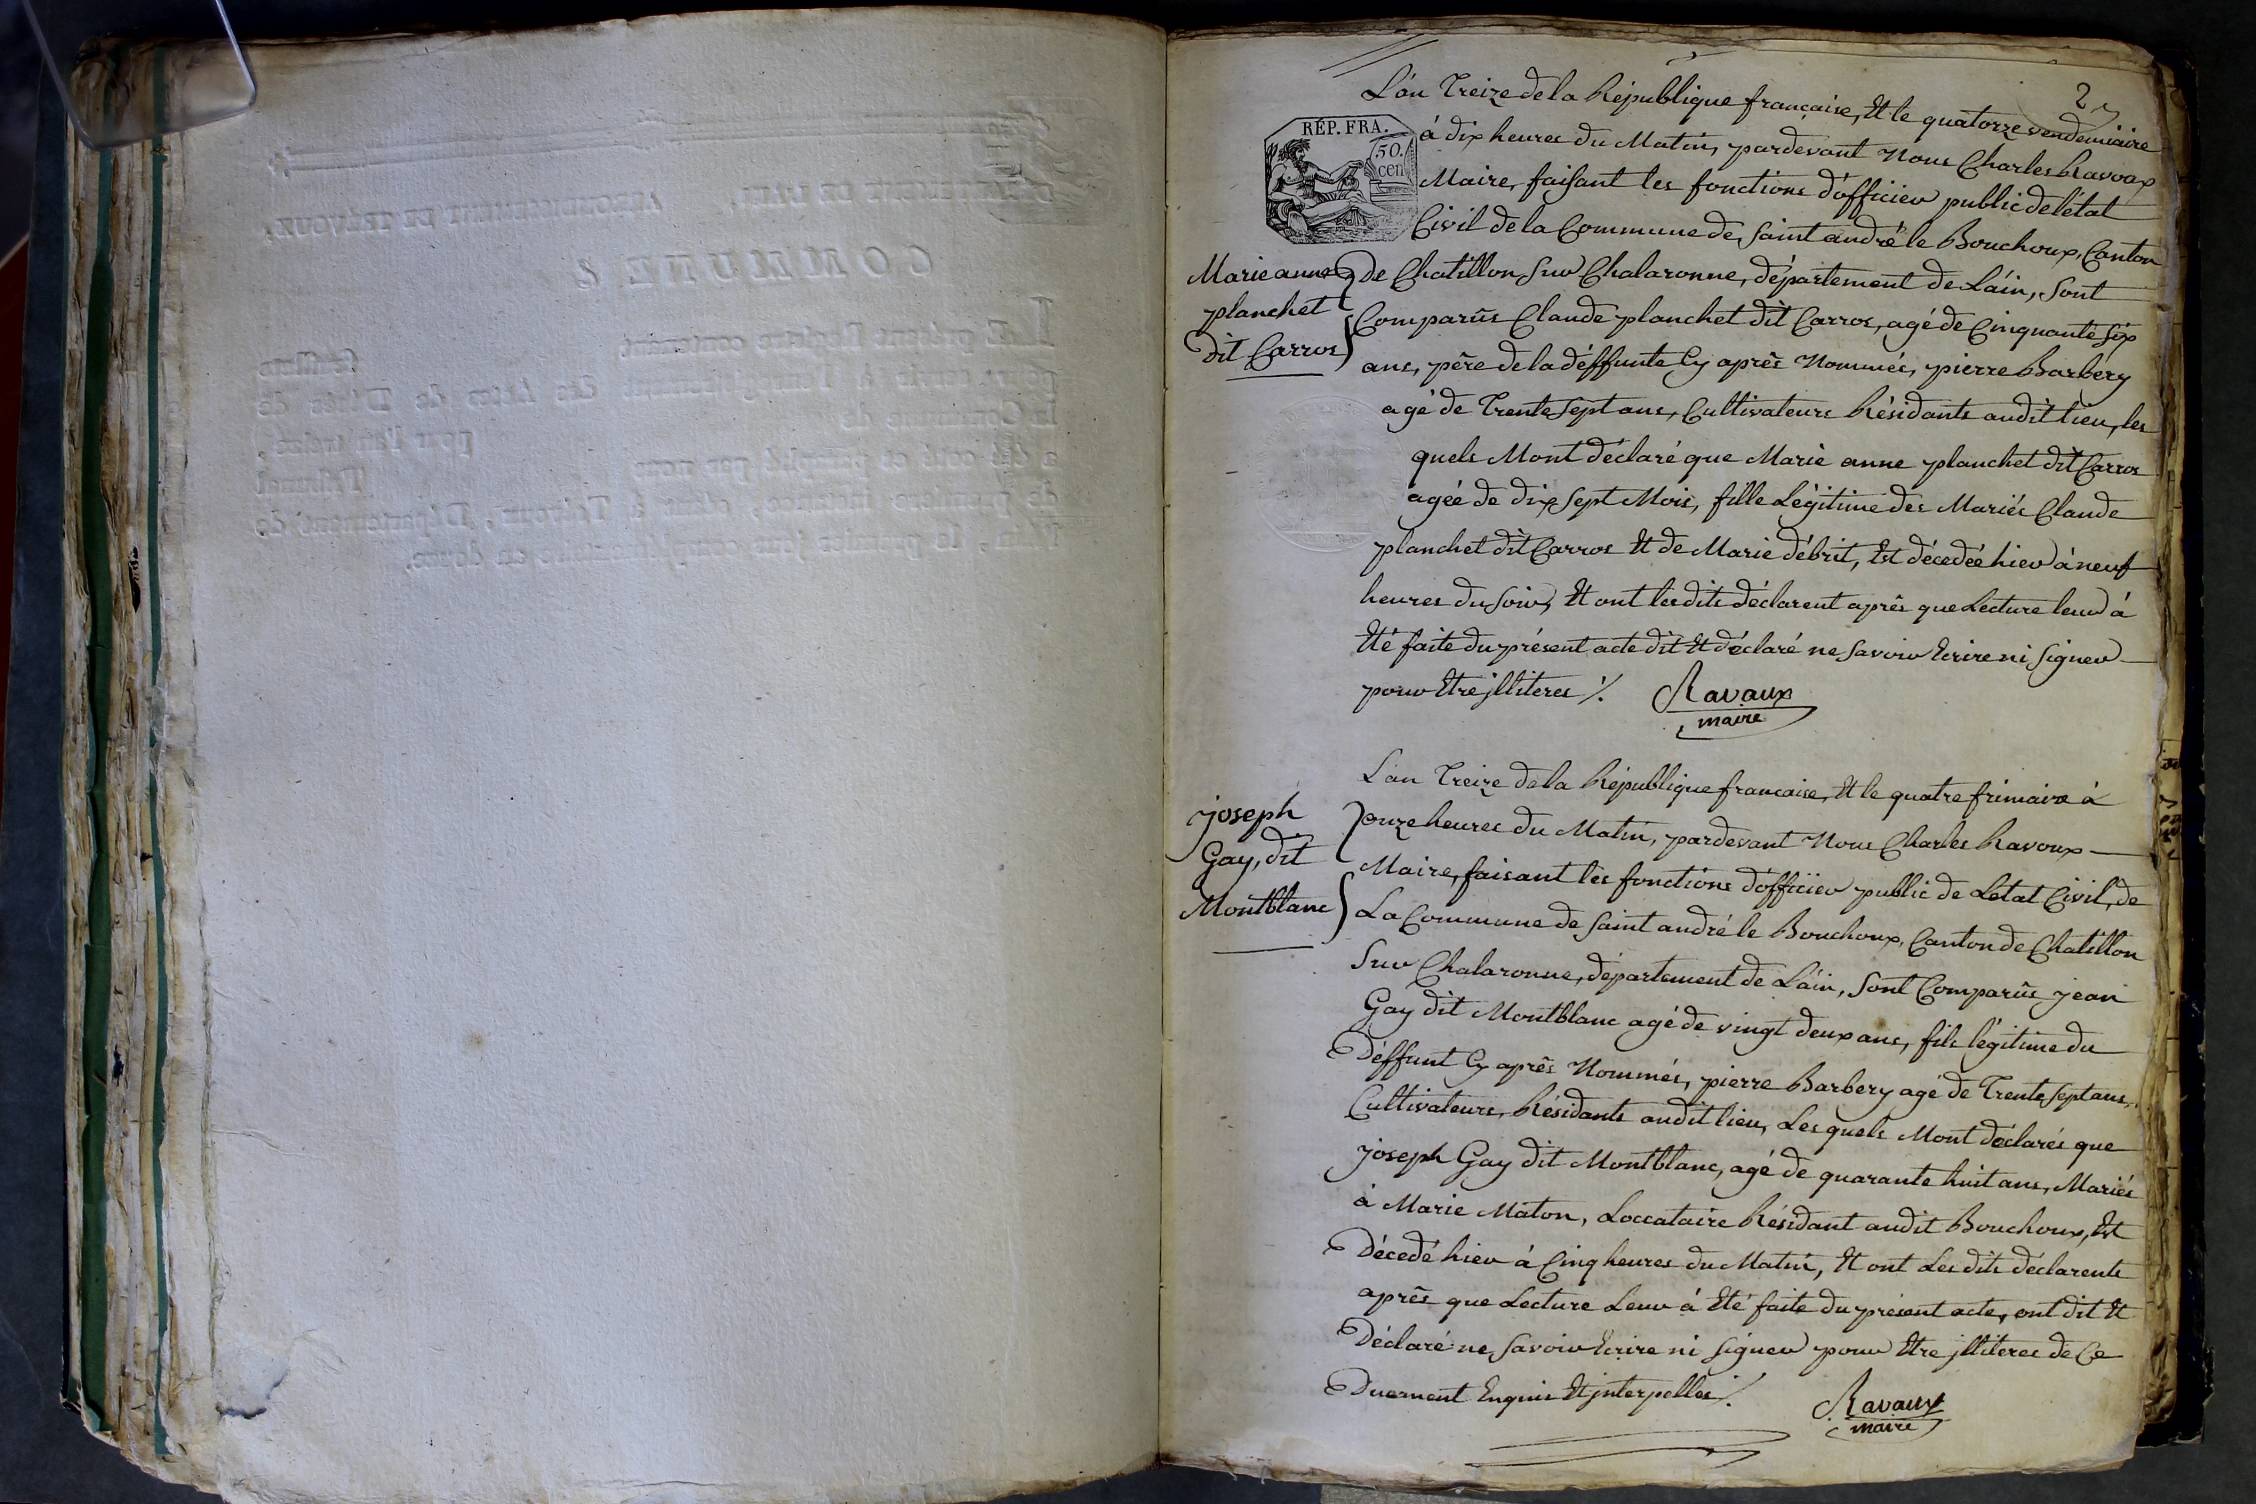 2
REP. FRA.
50.
cen
L'an Treize de la République française, Et le quatorze vendemiaire
à dix heures du Matin, pardevant Nous Charles Ravoux
Maire, faisant les fonctions d'officier public de l'état
Civil de la Commune de Saint andré le Bouchoux, Canton
de Chatillon Sur Chalaronne, département de L'ain, Sont
Comparûs Claude planchet dit Carros, agé de Cinquante Six
ans, père de la déffunte Cy après Nommée, pierre Barbery
agé de Trente Sept ans, Cultivateurs Résidants audit lieu, les
quels Mont déclaré que Marie anne planchet dit Carros
agée de dix Sept Mois, fille Légitime des Mariés Claude
planchet dit Carros Et de Marie débrit, Est décedée hier à neuf
heures du Soir, Et ont lesdits déclarent après que Lecture leur à
Eté faite du présent acte dit Et déclaré ne Savoir Ecrire ni Signer
pour Etre jlliteres ./.
Ravaux
maire
Marie anne
planchet
dit Carros
L'an Treize de la République francaise, Et le quatre frimaire à
onze heures du Matin, pardevant Nous Charles Ravoux
Maire, faisant les fonctions d'officier public de Letat Civil, de
La Commune de Saint andré le Bouchoux, Canton de Chatillon
Sur Chalaronne, département de L'ain, Sont Comparûs jean
Gay dit Montblanc agé de vingt deux ans, fils légitime du
Déffunt Cy après Nommés, pierre Barbery agé de Trente Sept ans,
Cultivateurs, Résidants audit lieu, Les quels Mont déclarés que
joseph Gay dit Montblanc, agé de quarante huit ans, Mariés
à Marie Maton, Loccataire Résidant audit Bouchoux, Est
Décedé hier à Cinq heures du Matin, Et ont Les dits déclarents
après que Lecture Leur à Eté faite du présent acte, ont dit Et
Déclaré ne Savoir Ecrire ni Signer pour Etre jlliteres de Ce
Duement Enquis Et jnterpellés ./.
Ravaux
maire
joseph
Gay, dit
Montblanc